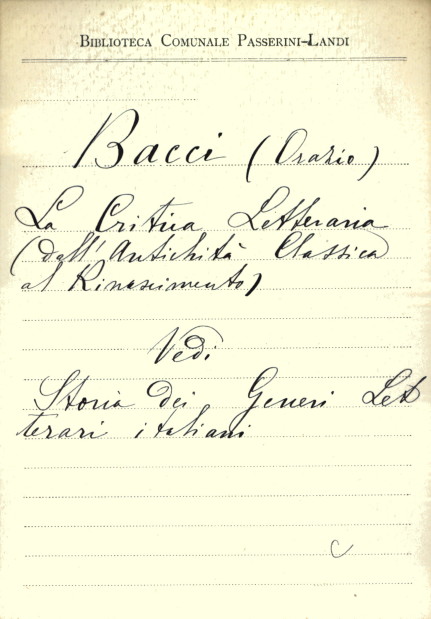 BIBLIOTECA COMUNALE PASSERINI-LANDI
Bacci (Orazio)
La Critica Letteraria
(dall'Antichità Classica
al Rinascimento)
Vedi
Storia dei Generi Let
terari italiani
C